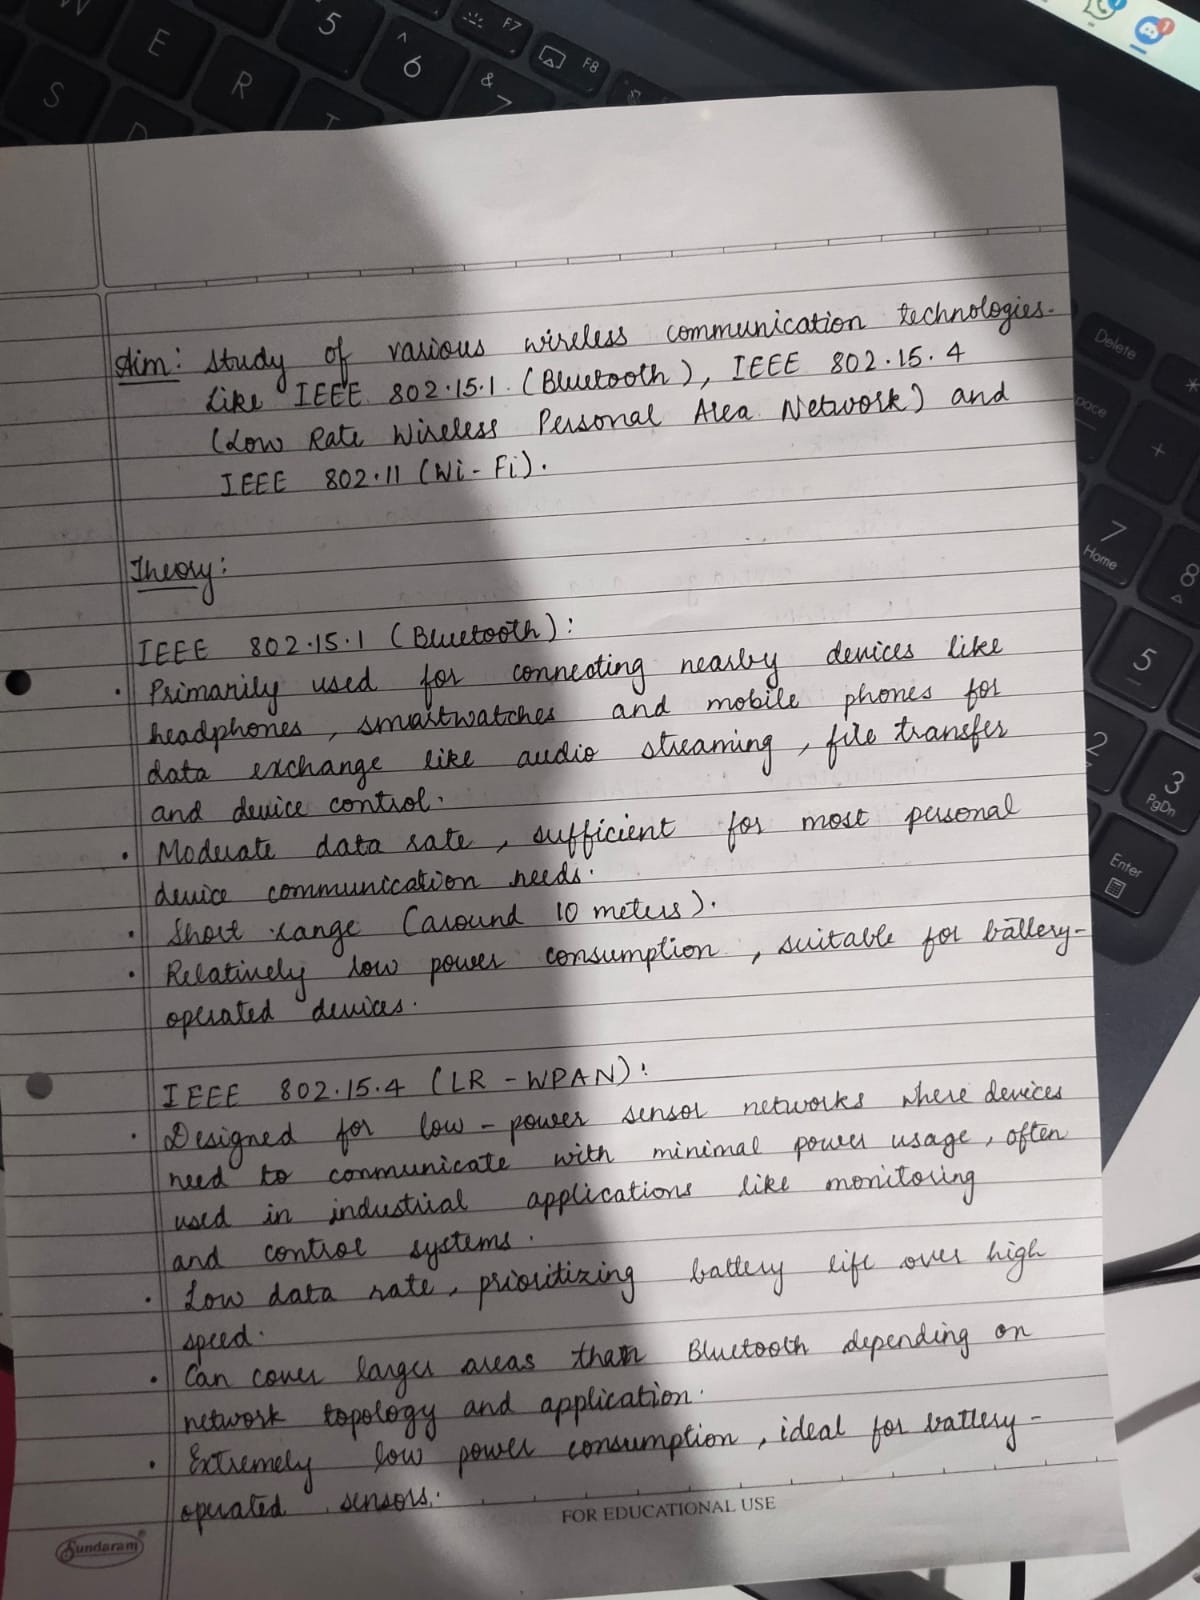 W
E
R
S
D
T
5
^
6
&
7
F7
F8
Delete
*
pace
+
7
Home
8
5
2
3
PgDn
Enter
Aim: Study of various wireless communication technologies.
Like IEEE 802.15.1. (Bluetooth), IEEE 802.15.4
(Low Rate Wireless Personal Area Network) and
IEEE 802.11 (Wi-Fi).
Theory:
IEEE 802.15.1 (Bluetooth):
• Primarily used for connecting nearby devices like
headphones, smartwatches and mobile phones for
data exchange like audio streaming, file transfer
and device control.
• Moderate data rate, sufficient for most personal
device communication needs.
• Short range (around 10 meters).
• Relatively low power consumption, suitable for battery-
operated devices.
IEEE 802.15.4 (LR-WPAN):
• Designed for low-power sensor networks where devices
need to communicate with minimal power usage, often
used in industrial applications like monitoring
and control systems.
• Low data rate, prioritizing battery life over high
speed.
• Can cover larger areas than Bluetooth depending on
network topology and application.
• Extremely low power consumption, ideal for battery-
operated sensors.
FOR EDUCATIONAL USE
Sundaram